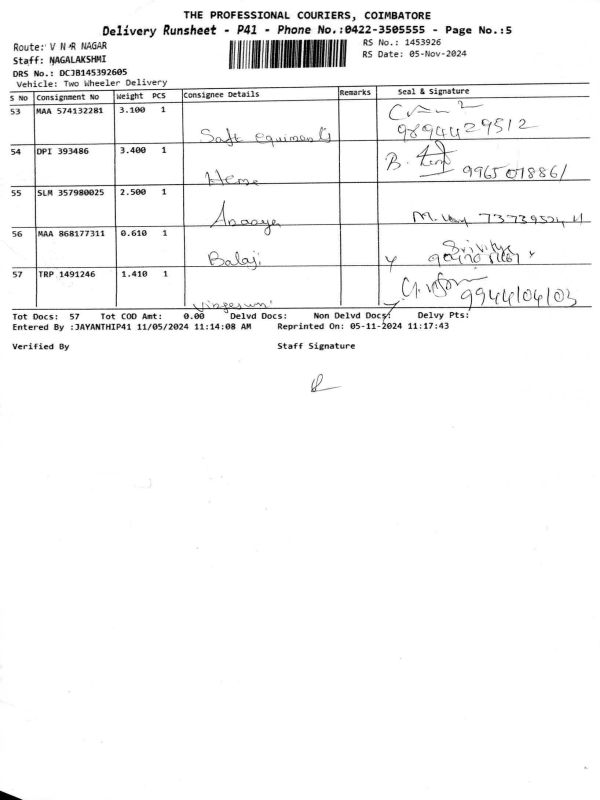 THE PROFESSIONAL COURIERS, COIMBATORE
Delivery Runsheet - P41 - Phone No.:0422-3505555 - Page No.:5
Route: V N R NAGAR
RS No.: 1453926
Staff: NAGALAKSHMI
RS Date: 05-Nov-2024
DRS No.: DCJB145392605
Vehicle: Two Wheeler Delivery
S No Consignment No Weight PCS Consignee Details Remarks Seal & Signature
53 MAA 574132281 3.100 1
9894429512
54 DPI 393486 3.400 1
B. 9965018861
55 SLM 357980025 2.500 1
56 MAA 868177311 0.610 1
Balaji
57 TRP 1491246 1.410 1
9944104103
Tot Docs: 57 Tot COD Amt: 0.00 Delvd Docs: Non Delvd Docs: Delvy Pts:
Entered By :JAYANTHIP41 11/05/2024 11:14:08 AM Reprinted On: 05-11-2024 11:17:43
Verified By Staff Signature